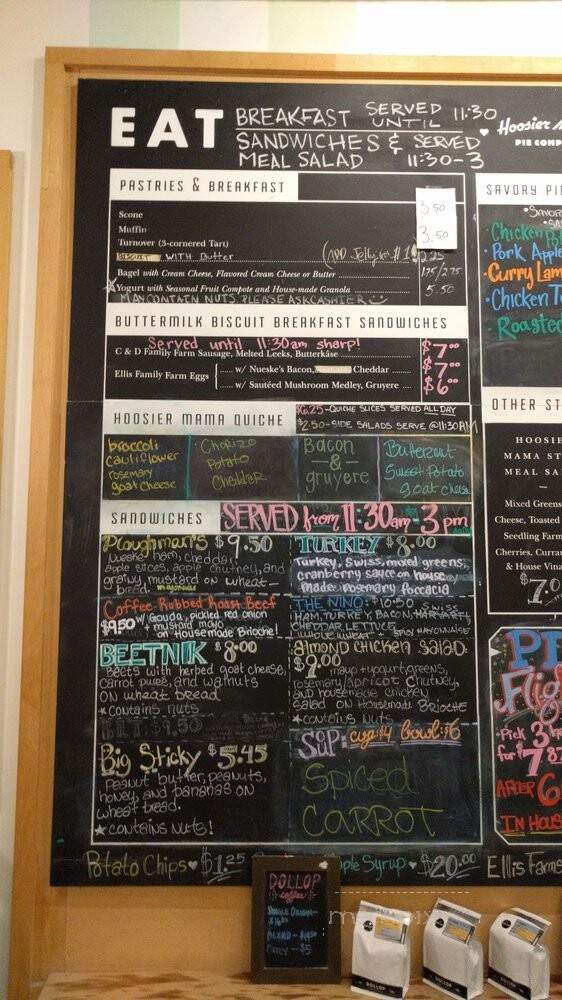 EAT BREAKFAST SERVED UNTIL 11:30
SANDWICHES & SERVED
MEAL SALAD 11:30-3
Hoosier
PIE COMP
PASTRIES & BREAKFAST
Scone 3.50
Muffin
Turnover (3-cornered Tart) 3.50
BISCUIT WITH Butter (ADD Jelly $1) 2.25
Bagel with Cream Cheese, Flavored Cream Cheese or Butter 1.75/2.75
Yogurt with Seasonal Fruit Compote and House-made Granola 5.50
MAY CONTAIN NUTS. PLEASE ASK CASHIER
BUTTERMILK BISCUIT BREAKFAST SANDWICHES
Served until 11:30am sharp!
C & D Family Farm Sausage, Melted Leeks, Butterkäse $7.00
Ellis Family Farm Eggs
w/ Nueske's Bacon, Cheddar $7.00
w/ Sautéed Mushroom Medley, Gruyere $6.00
HOOSIER MAMA QUICHE
$6.25-QUICHE SLICES SERVED ALL DAY
$2.50-SIDE SALADS SERVE @11:30AM
broccoli
cauliflower
rosemary
goat cheese
Chorizo
Potato
Cheddar
Bacon
&
gruyere
Butternut
Sweet Potato
goat cheese
SANDWICHES
SERVED from 11:30am-3pm
Ploughman's $9.50
Nueske ham, cheddar,
apple slices, apple chutney, and
grainy mustard on wheat
bread. mayonnaise
Coffee Rubbed Roast Beef
$9.50 w/ Gouda, pickled red onion
+ mustard mayo
on Housemade Brioche!
BEETNIK $8.00
Beets with herbed goat cheese,
carrot puree, and walnuts
on wheat bread
*contains nuts
BLT $9.50
Big Sticky $5.45
Peanut butter, peanuts,
honey, and bananas on
wheat bread.
★ contains nuts!
TURKEY $8.00
Turkey, Swiss, mixed greens,
cranberry sauce on house
made rosemary foccacia
THE NINO: $10.50
HAM, TURKEY, BACON, HARVARTI, SWISS
CHEDDAR, LETTUCE
WHOLE WHEAT + SPICY MAYONNAISE
almond chicken salad:
$9.00 mayo + yogurt, greens,
rosemary/apricot chutney,
and housemade chicken
salad on Housemade Brioche
*contains nuts
SOUP: cup:$4 bowl:$6
Spiced
CARROT
SAVORY PI
Chicken Po
Pork Apple
Curry Lam
Chicken T
Roasted
OTHER ST
HOOSIE
MAMA ST
MEAL SA
Mixed Greens
Cheese, Toasted
Seedling Farm
Cherries, Curra
& House Vina
$7.0
Pi
Flig
Pick 3
for $7
AFTER 6
IN HOUS
Potato Chips ♥ $1.25
Maple Syrup ♥ $20.00
Ellis Farms
DOLLOP
coffee
SINGLE ORIGIN-
BLEND-
ONLY - $5
DOLLOP
DOLLOP
DOLLOP